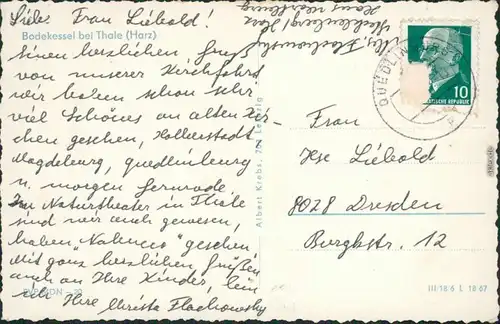 Liebe Frau Liebold!
Bodekessel bei Thale (Harz)
einen herzlichen Gruß
von unserer Kirchfahrt
wir haben schon sehr
viel Schönes an alten Kir
chen gesehen, Halberstadt
Magdeburg, Quedlinburg
u. morgen Gernrode
Im Naturtheater in Thale
sind wir auch gewesen,
haben „Nabucco" gesehen
Mit ganz herzlichen Grüßen
auch an Ihre Kinder, bin
ich Ihre Christa Flachowsky
Flachowsky
Harz
Haus
Albert Krebs, Leipzig
QUEDLIN
10
REPUBLIK
Frau
Ilse Liebold
8028 Dresden
Burgkstr. 12
III/18/6 L 18 67